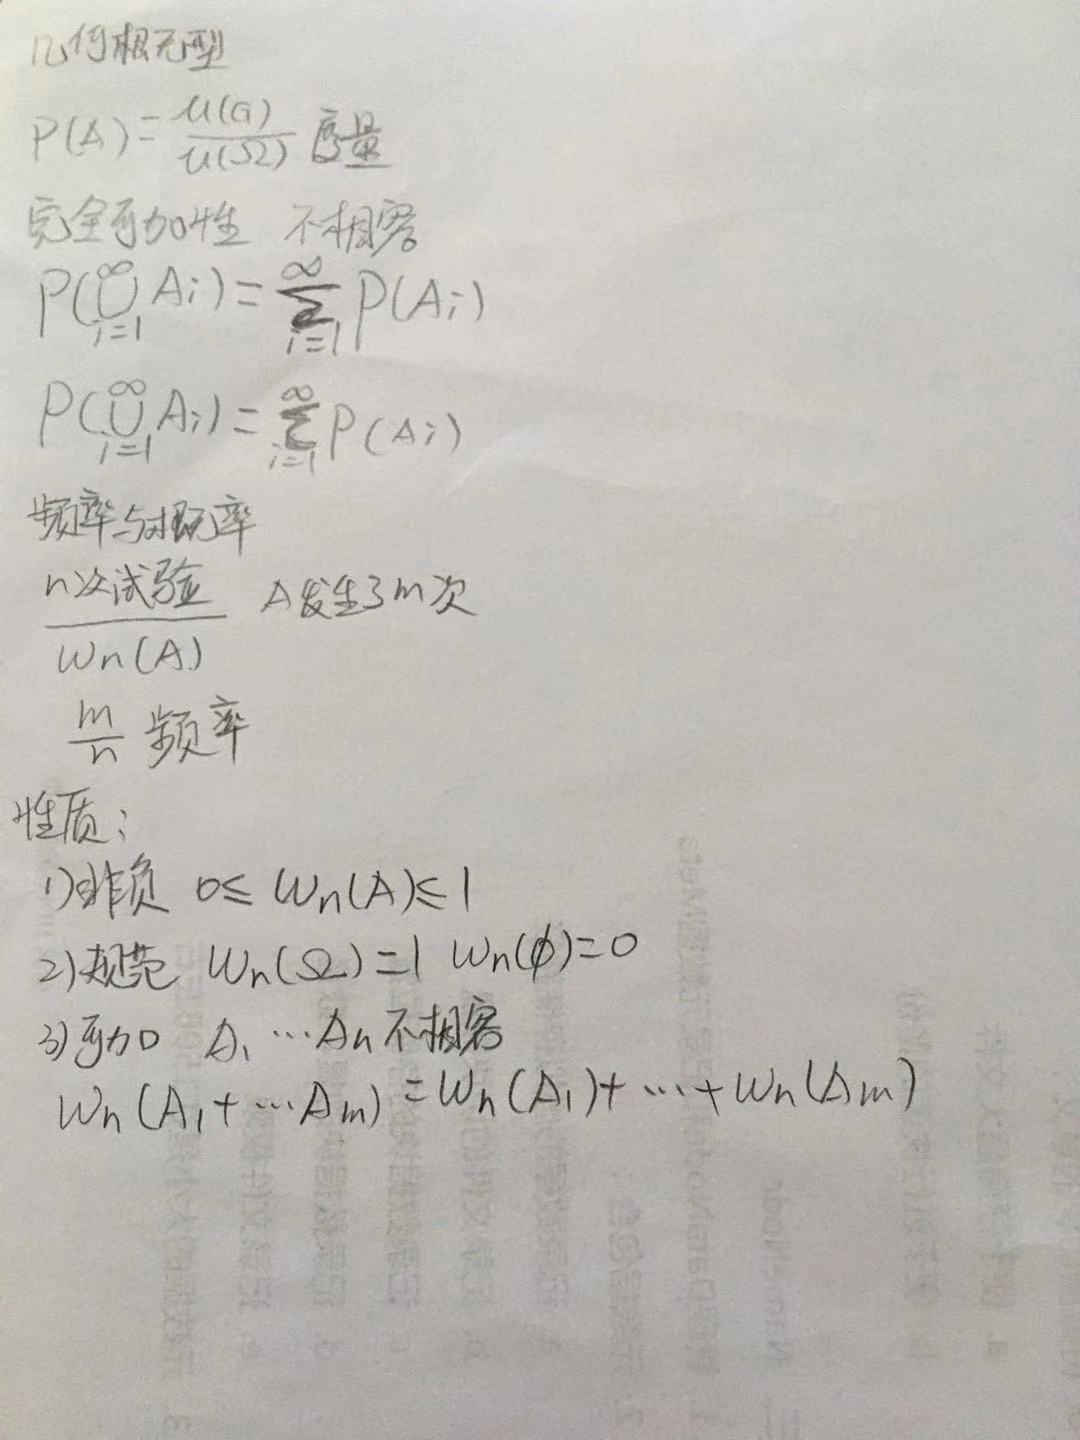 几何概型
P(A)=μ(G)/μ(Ω) 度量
完全可加性 不相容
P(⋃_{i=1}^{∞} Ai)=∑_{i=1}^{∞} P(Ai)
P(⋃_{i=1}^{∞} Ai)=∑_{i=1}^{∞} P(Ai)
频率与概率
n次试验 A发生了m次
Wn(A)
m/n 频率
性质:
1)非负 0≤Wn(A)≤1
2)规范 Wn(Ω)=1 Wn(ϕ)=0
3)可加 A1…An不相容
Wn(A1+…Am)=Wn(A1)+…+Wn(Am)